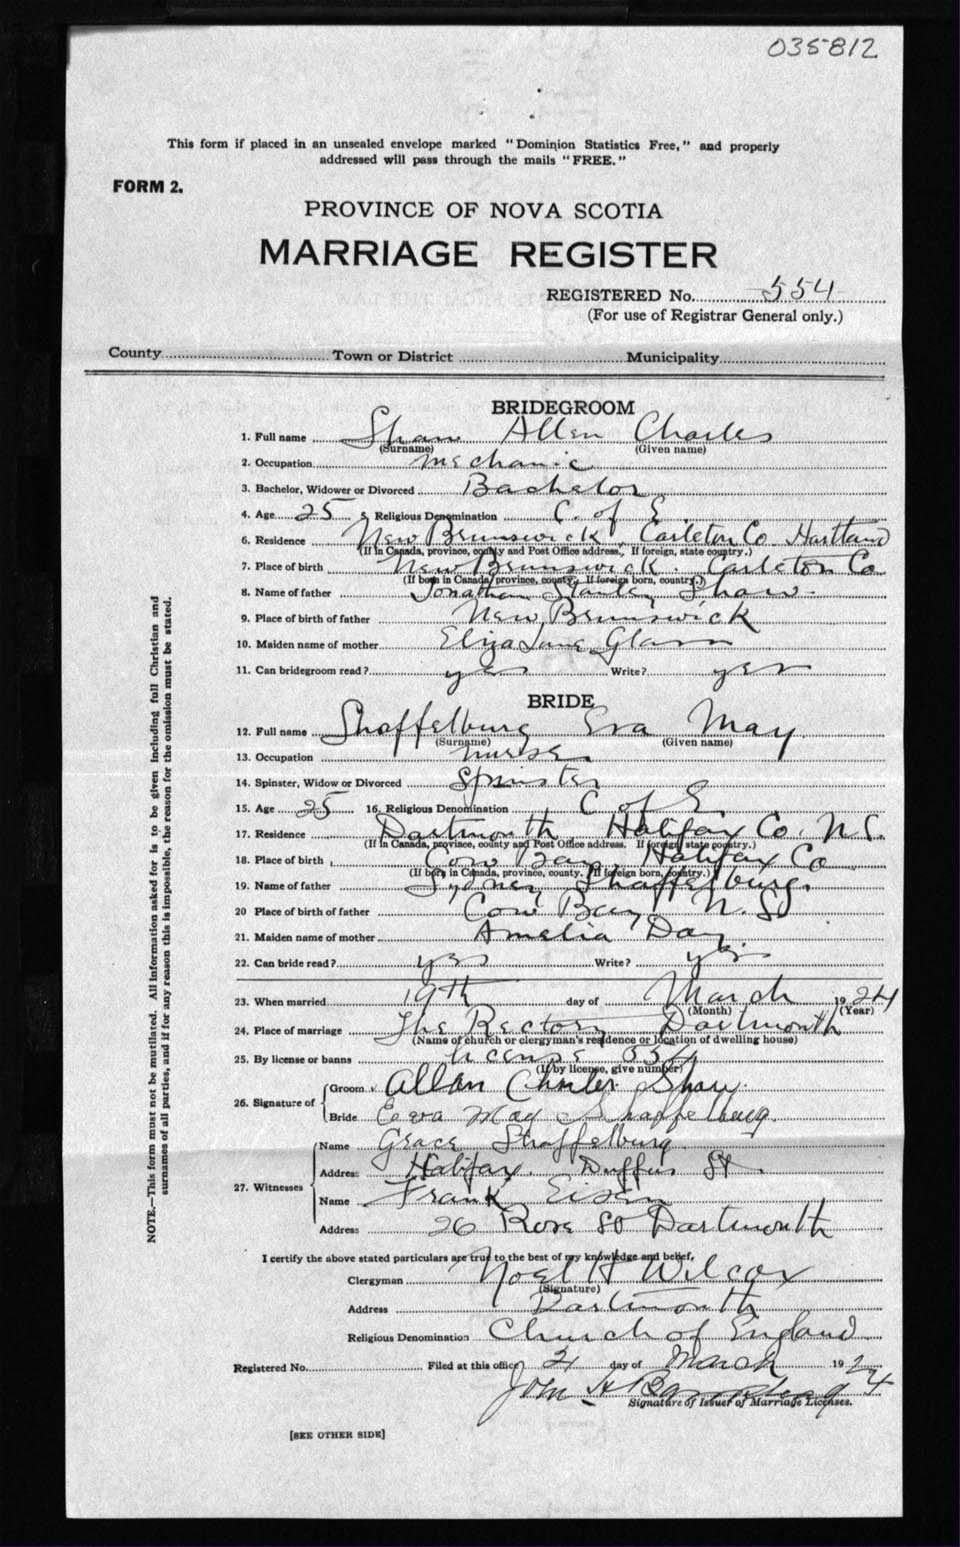 035812
This form if placed in an unsealed envelope marked "Dominion Statistics Free," and properly
addressed will pass through the mails "FREE."
FORM 2.
PROVINCE OF NOVA SCOTIA
MARRIAGE REGISTER
REGISTERED No. 554
(For use of Registrar General only.)
County Town or District Municipality
BRIDEGROOM
1. Full name Shaw Allen Charles
(Surname) (Given name)
2. Occupation Mechanic
3. Bachelor, Widower or Divorced Bachelor
4. Age 25 5. Religious Denomination C. of E
6. Residence New Brunswick, Carleton Co Hartland
(If in Canada, province, county and Post Office address. If foreign, state country.)
7. Place of birth New Brunswick. Carleton Co
(If born in Canada, province, county. If foreign born, country.)
8. Name of father Jonathan Stanley Shaw
9. Place of birth of father New Brunswick
10. Maiden name of mother Eliza Jane Glass
11. Can bridegroom read? yes Write? yes
BRIDE
12. Full name Shaffelburg Eva May
(Surname) (Given name)
13. Occupation nurse
14. Spinster, Widow or Divorced Spinster
15. Age 25 16. Religious Denomination C of E
17. Residence Dartmouth, Halifax Co. N.S.
(If in Canada, province, county and Post Office address. If foreign, state country.)
18. Place of birth Cow Bay, Halifax Co
(If born in Canada, province, county. If foreign born, country.)
19. Name of father Sydney Shaffelburg
20 Place of birth of father Cow Bay N.S
21. Maiden name of mother Amelia Day
22. Can bride read? yes Write? yes
23. When married 19th day of March 1924
(Month) (Year)
24. Place of marriage The Rectory Dartmouth
(Name of church or clergyman's residence or location of dwelling house)
25. By license or banns license 554
(If by license, give number)
26. Signature of
Groom Allan Charles Shaw
Bride Eva May Shaffelburg
27. Witnesses
Name Grace Shaffelburg
Address Halifax Duffus St
Name Frank Eisen
Address 26 Rose St Dartmouth
I certify the above stated particulars are true to the best of my knowledge and belief,
Clergyman Noel H Wilcox
(Signature)
Address Dartmouth
Religious Denomination Church of England
Registered No. Filed at this office 21 day of March 1924
John H
Signature of Issuer of Marriage Licenses.
[SEE OTHER SIDE]
NOTE.—This form must not be mutilated. All information asked for is to be given including full Christian and
surnames of all parties, and if for any reason this is impossible, the reason for the omission must be stated.